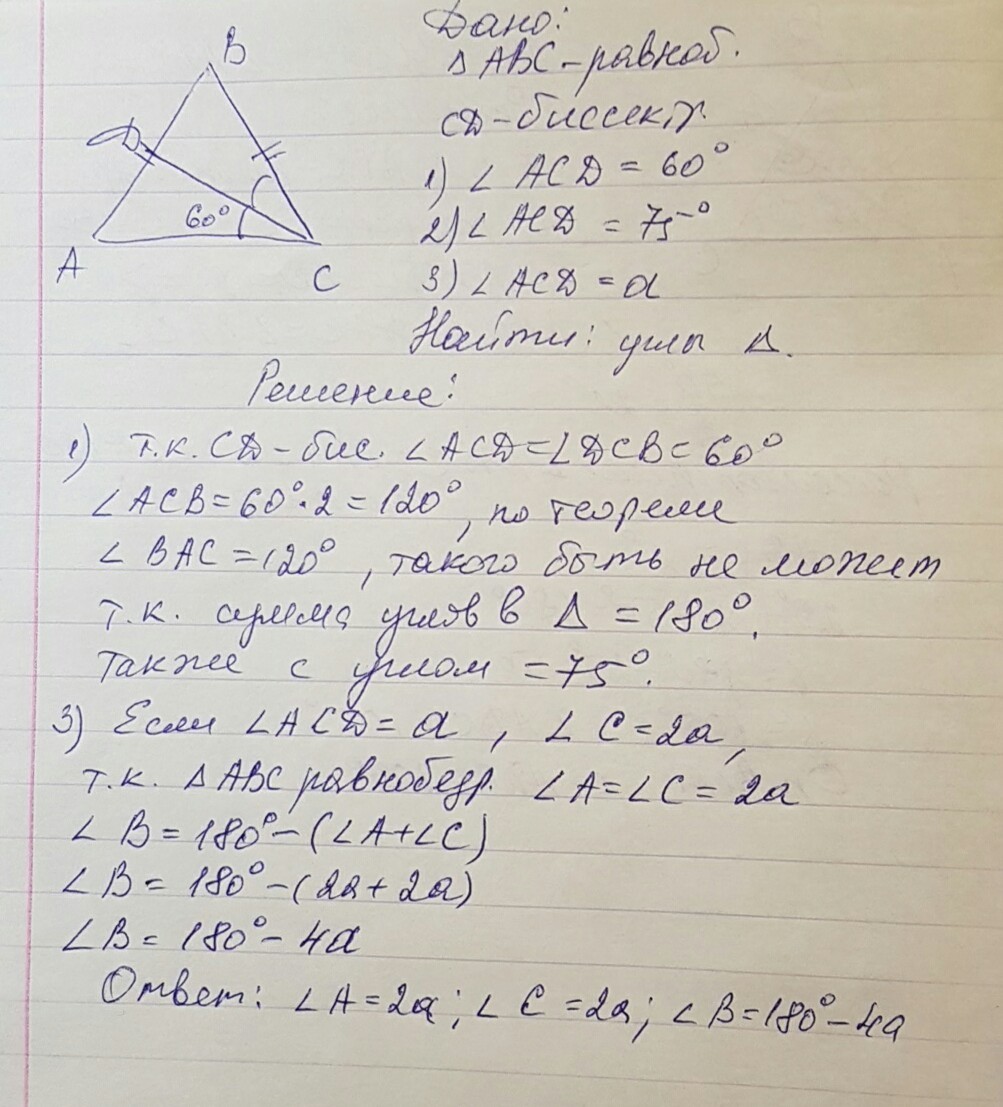 Дано:
Δ ABC - равноб.
CD - биссектр.
1) ∠ ACD = 60°
2) ∠ ACD = 75°
3) ∠ ACD = a
Найти: углы Δ.
B
D
60°
A
C
Решение:
1) т.к. CD - бис. ∠ ACD = ∠DCB = 60°
∠ ACB = 60° · 2 = 120°, по теореме
∠ BAC = 120°, такого быть не может
т.к. сумма углов в Δ = 180°.
также с углом = 75°.
3) Если ∠ ACD = a, ∠ C = 2a,
т.к. Δ ABC равнобедр. ∠ A = ∠ C = 2a
∠ B = 180° - (∠A + ∠C)
∠ B = 180° - (2a + 2a)
∠ B = 180° - 4a
Ответ: ∠ A = 2a; ∠ C = 2a; ∠ B = 180° - 4a